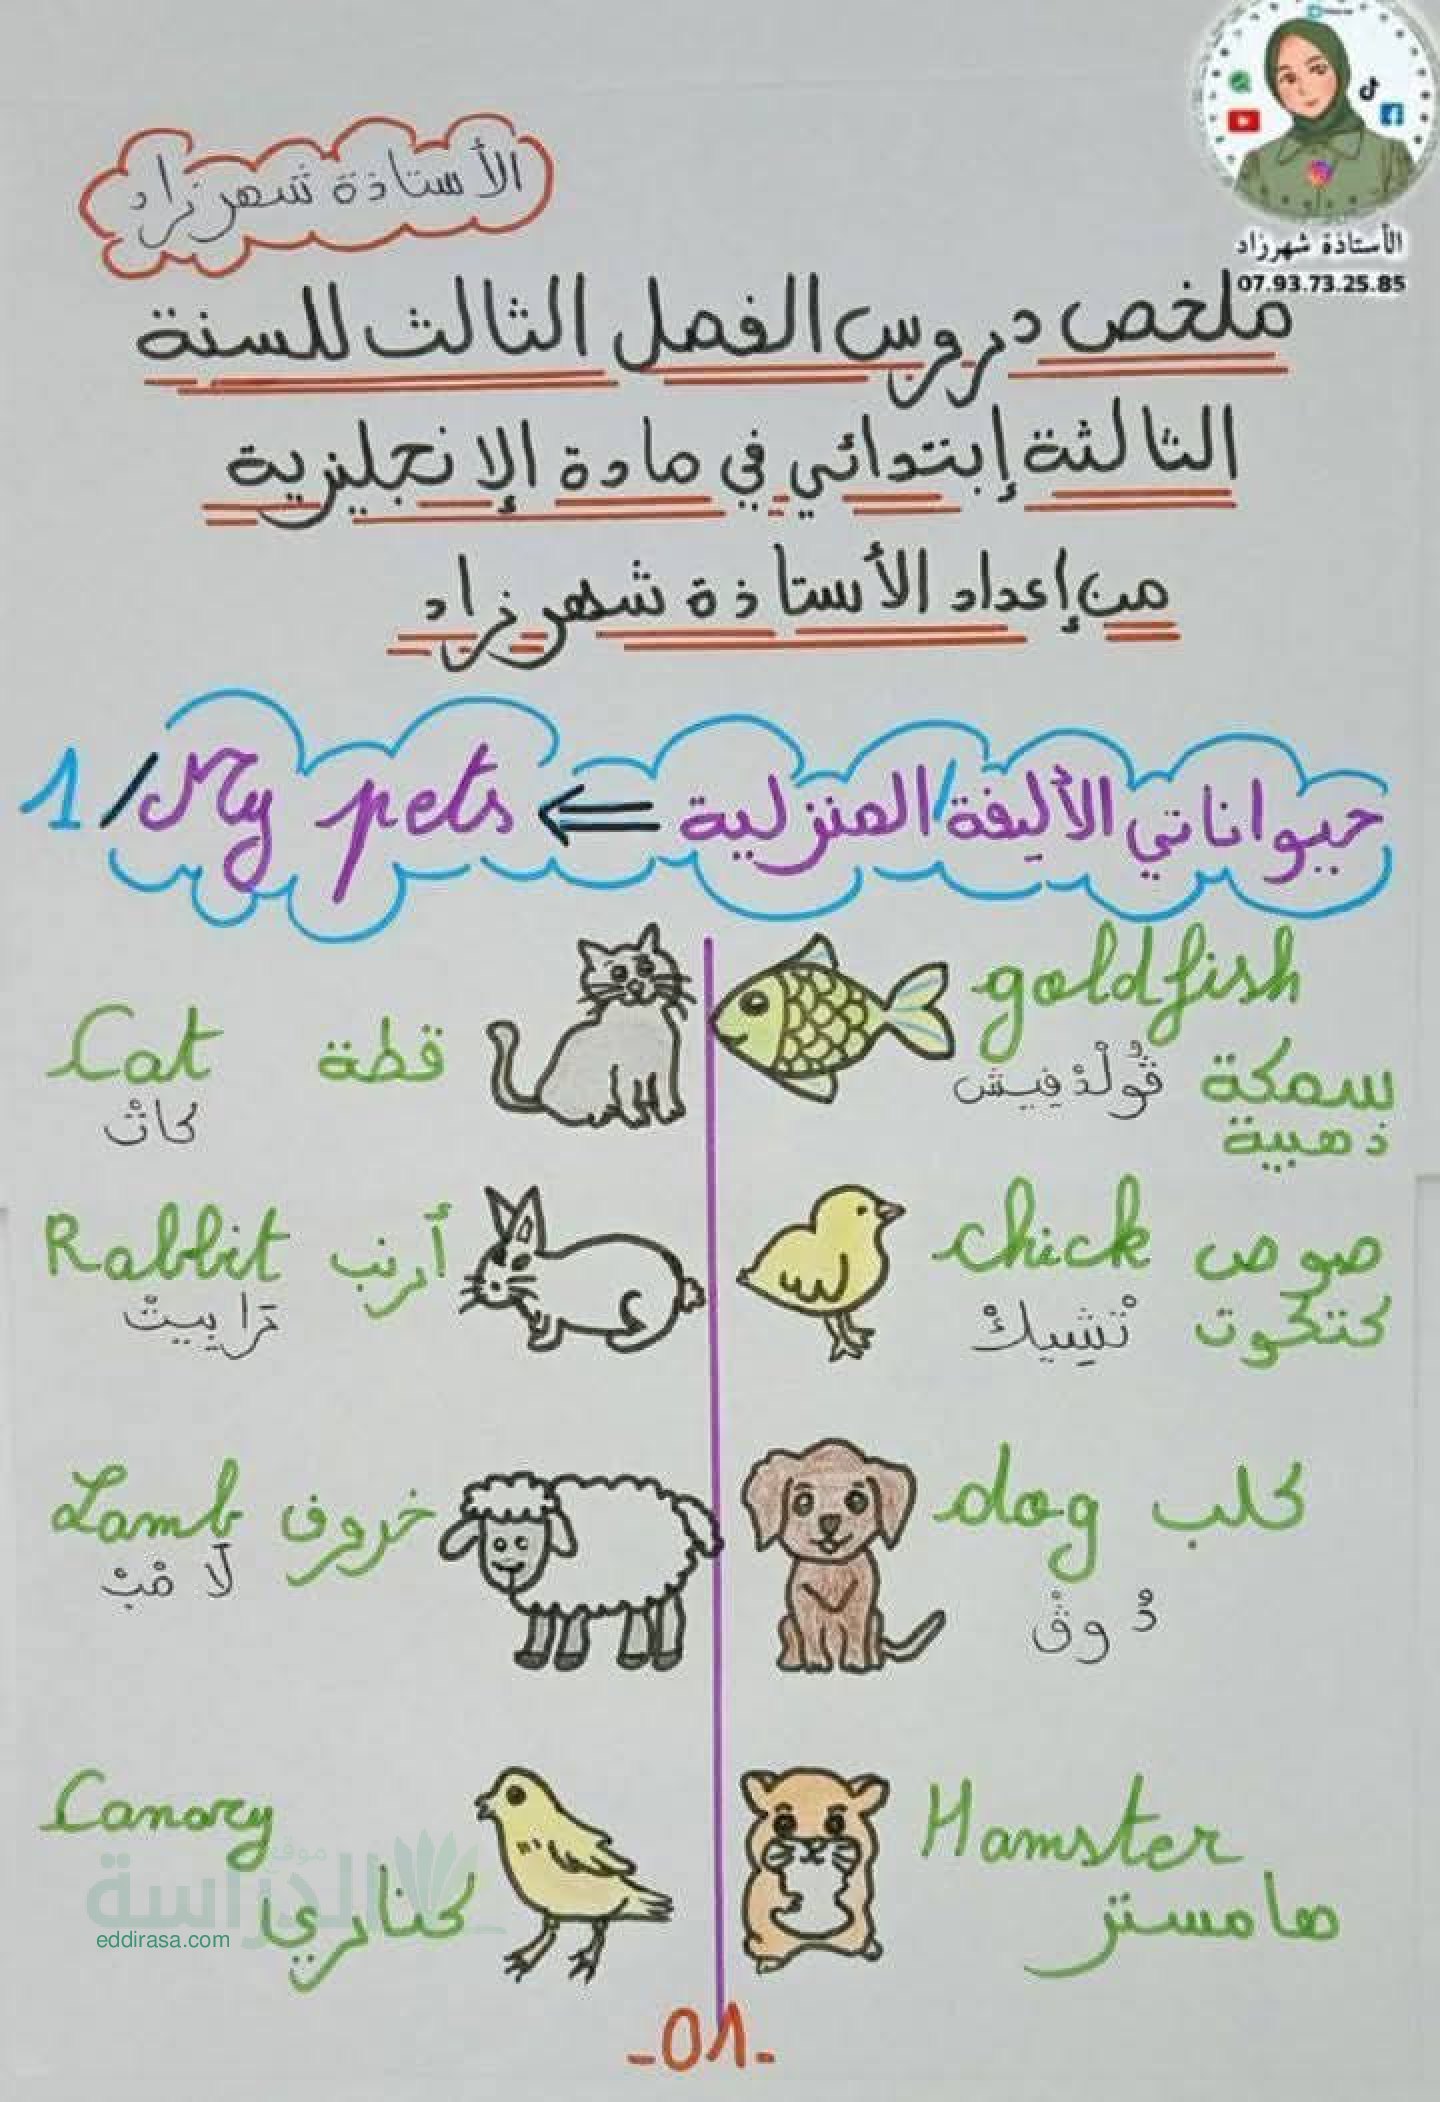 الأستاذة شهرزاد
الأستاذة شهرزاد
07.93.73.25.85
ملخص دروس الفصل الثالث للسنة
الثالثة إبتدائي في مادة الإنجليزية
من إعداد الأستاذة شهرزاد
1/ My pets ⇐ حيواناتي الأليفة/المنزلية
Cat قطة
كاتْ
goldfish
قُولْدْفِيشْ سمكة
ذهبية
Rabbit أرنب
رَابِيتْ
chick صوص
تْشِيكْ كتكوت
Lamb خروف
لَامْبْ
dog كلب
دُوقْ
Canary
كناري
Hamster
هامستر
موقع
الدراسة
eddirasa.com
-01-